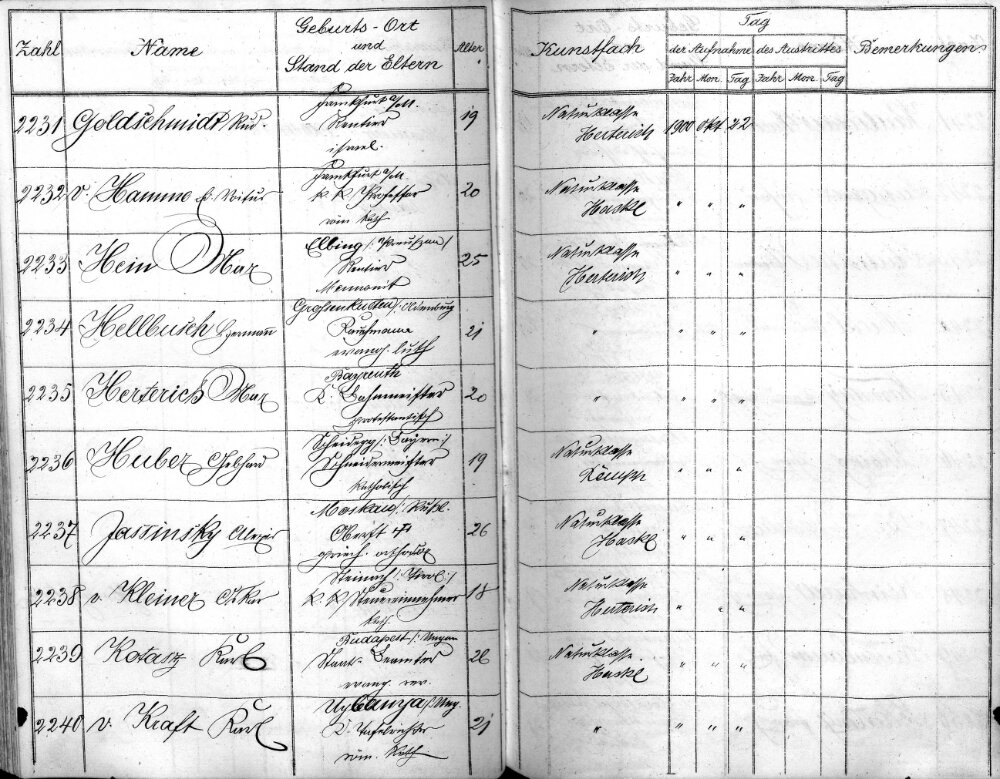 Zahl Name Geburts-Ort und Stand der Eltern Alter Kunstfach Tag der Aufnahme des Austrittes Bemerkungen
Jahr Mon. Tag Jahr Mon. Tag
Frankfurt a/M.
2231 Goldschmidt Rud. Rentier 19 Naturklasse
israel. Herterich 1900 Okt. 22
Frankfurt a/M
2232 v. Hamme K. K. Professor 20 Naturklasse
röm kath Hackl " " "
Elbing /: Preußen /
2233 Hein Max Rentier 25 Naturklasse
Mennonit Herterich " " "
Großenkneten /: Oldenburg
2234 Hellbusch Hermann Kaufmann 21 " " " "
evang. luth
Bayreuth
2235 Herterich Max K. Bahnmeister 20 " " " "
protestantisch
Scheidegg /: Bayern :/
2236 Huber Gebhard Schneidermeister 19 Naturklasse
katholisch " " "
Moskau /: Rußl.
2237 Jassinsky Alexei Oberst † 26 Naturklasse
griech. orthodox Hackl " " "
Steinach /: Tirol :/
2238 v. Kleiner Oskar K. K. Steuereinnehmer 18 Naturklasse
kath Herterich " " "
Budapest /: Ungarn
2239 Kotasz Karl Staats-Beamter 28 Naturklasse
evang. rev. Hackl " " "
2240 v. Kraft Karl K. Tafelrichter 21 " " " "
röm. kath